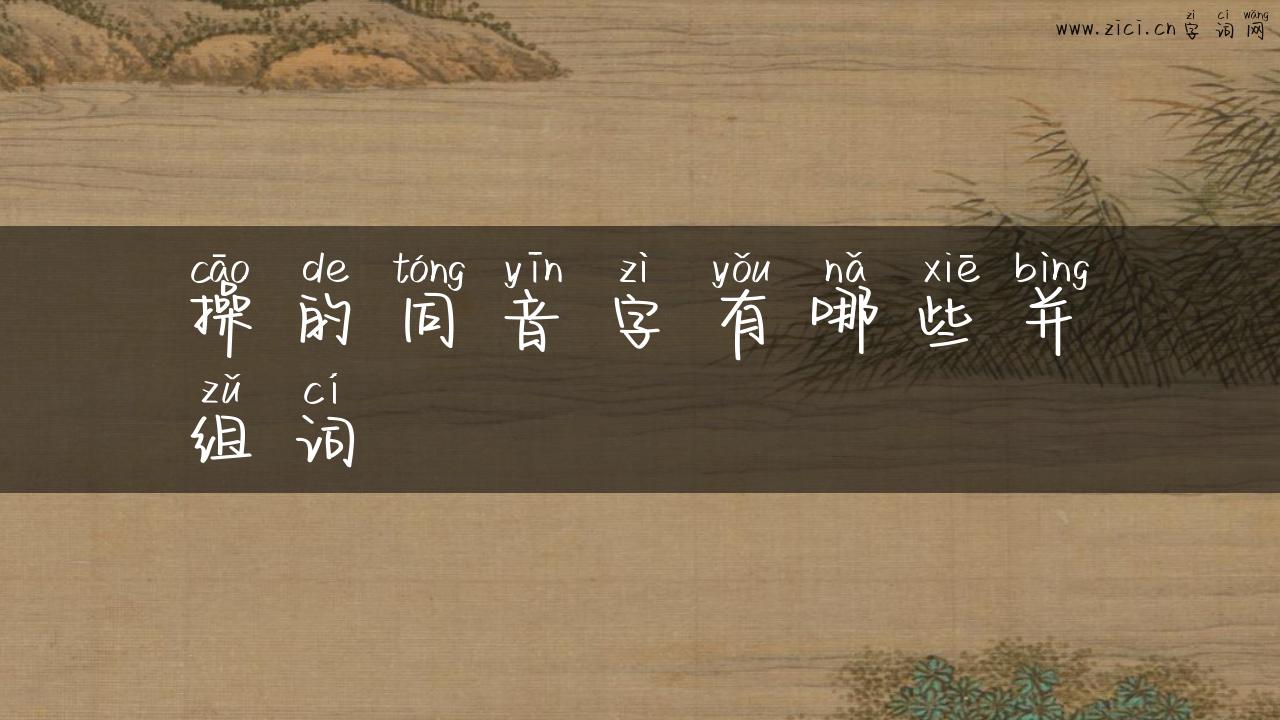 zì cí wǎng
www.zici.cn 字 词 网
cāo de tóng yīn zì yǒu nǎ xiē bìng
操 的 同 音 字 有 哪 些 并
zǔ cí
组 词